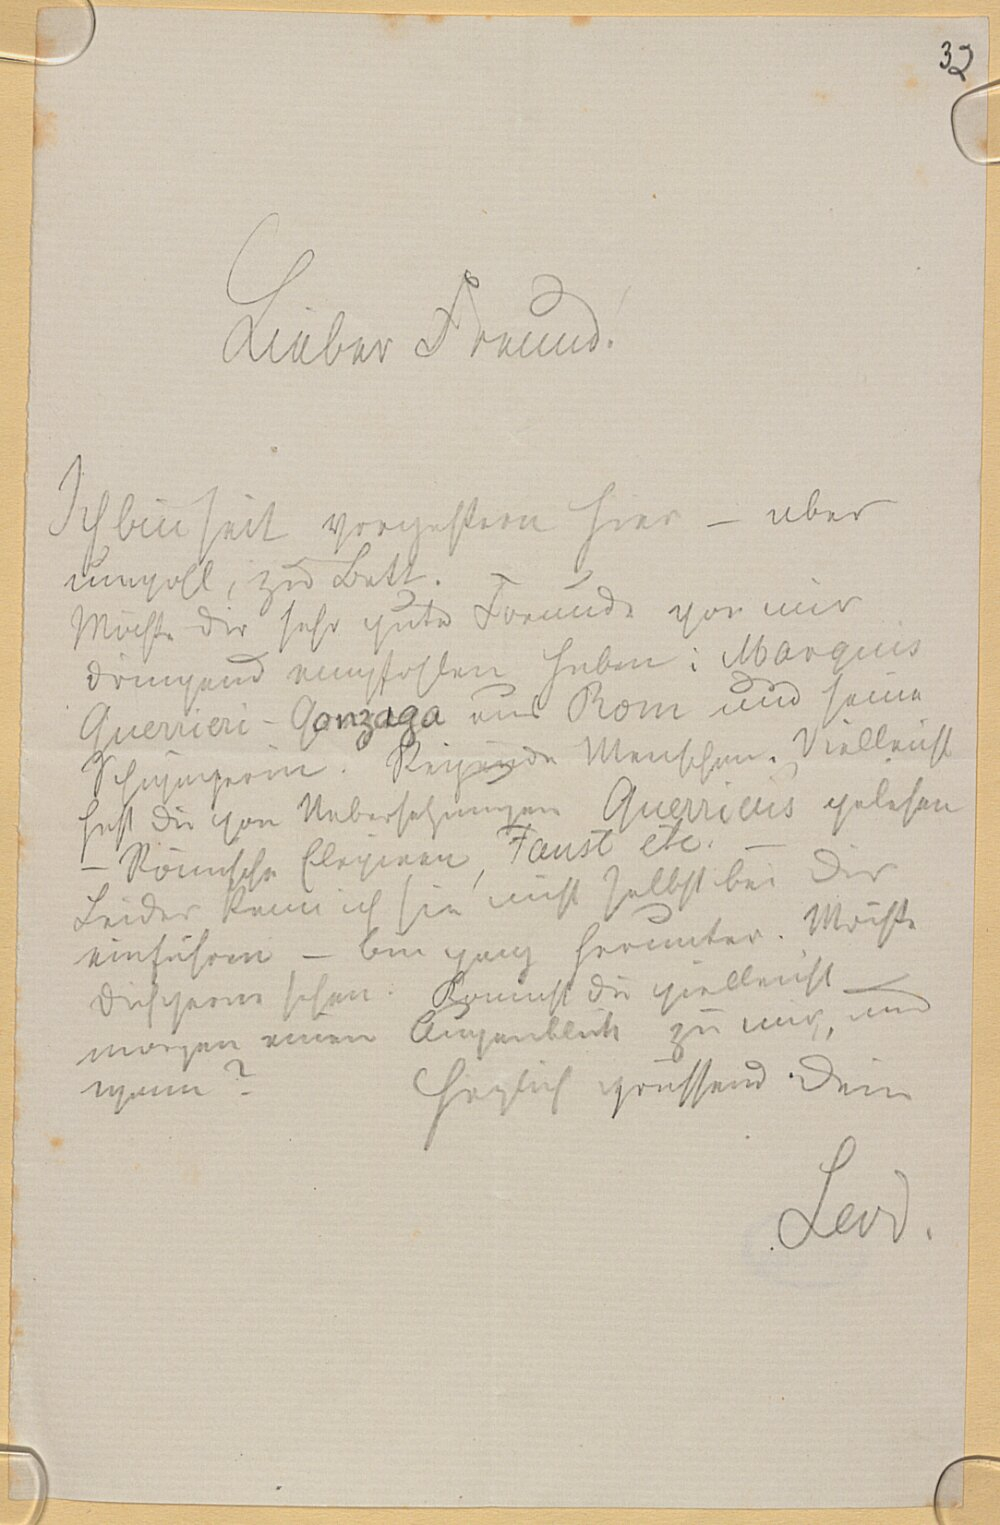 32
Lieber Freund!
Ich bin seit vorgestern hier – aber
unwohl, zu Bett. –
Möchte Dir sehr gute Freunde von mir
dringend empfohlen haben: Marquis
Guerrieri-Gonzaga aus Rom und seine
Schwägerin. Reizende Menschen. Vielleicht
hast du von Uebersetzungen Guerrieris gelesen
– Römische Elegieen, Faust etc. –
Leider kann ich sie nicht selbst bei Dir
einführen – bin ganz herunter. Möchte
Dich gerne sehen. Kommst du vielleicht
morgen einen Augenblick zu mir, und
wann? Herzlich grüssend Dein